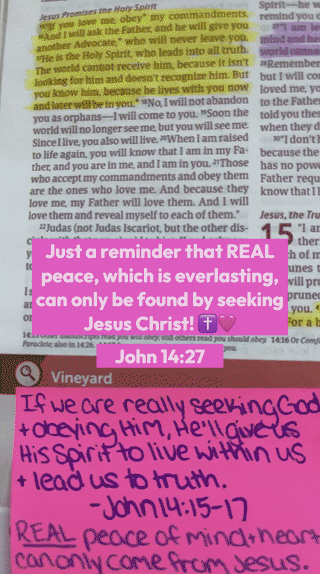 Jesus Promises the Holy Spirit
"If you love me, obey" my commandments.
16And I will ask the Father, and he will give you
another Advocate," who will never leave you.
17He is the Holy Spirit, who leads into all truth.
The world cannot receive him, because it isn't
looking for him and doesn't recognize him. But
you know him, because he lives with you now
and later will be in you." 18No, I will not abandon
you as orphans—I will come to you. 19Soon the
world will no longer see me, but you will see me.
Since I live, you also will live. 20When I am raised
to life again, you will know that I am in my Fa-
ther, and you are in me, and I am in you. 21Those
who accept my commandments and obey them
are the ones who love me. And because they
love me, my Father will love them. And I will
love them and reveal myself to each of them."
22Judas (not Judas Iscariot, but the other dis-
Spirit—he w
remind you o
"I am le
mind and hea
world cannot
28Remember
but I will co
loved me, yo
to the Father
told you thes
when they d
30"I don't h
because the
has no powe
Father requ
know that I
Jesus, the Tru
15 "I a
ther
h of m
unes t
will pro
pruned
you. 4
For a b
Just a reminder that REAL
peace, which is everlasting,
can only be found by seeking
Jesus Christ! ✝️🩷
John 14:27
still others read you should obey. 14:16 Or Comfo
Paraclete; also in 14:26.
you.
Vineyard
If we are really seeking God
+ obeying Him, He'll give us
His Spirit to live within us
+ lead us to truth.
-John 14:15-17
REAL peace of mind + heart
can only come from Jesus.